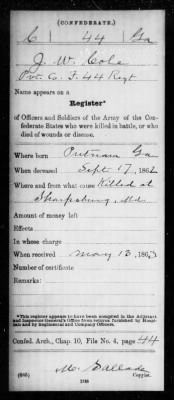 (CONFEDERATE.)
C 44 Ga
J. W. Cole
Pvt. Co. F. 44 Regt
Name appears on a
Register*
of Officers and Soldiers of the Army of the Con-
federate States who were killed in battle, or who
died of wounds or disease.
Where born Putnam Ga
When deceased Sept 17, 1862
Where and from what cause Killed at
Sharpsburg, Md.
Amount of money left
Effects
In whose charge
When received May 13, 1863
Number of certificate
Remarks:
*This register appears to have been compiled in the Adjutant
and Inspector General's Office from returns furnished by Hospi-
tals and by Regimental and Company Officers.
Confed. Arch., Chap. 10, File No. 4, page 44
Copyist.